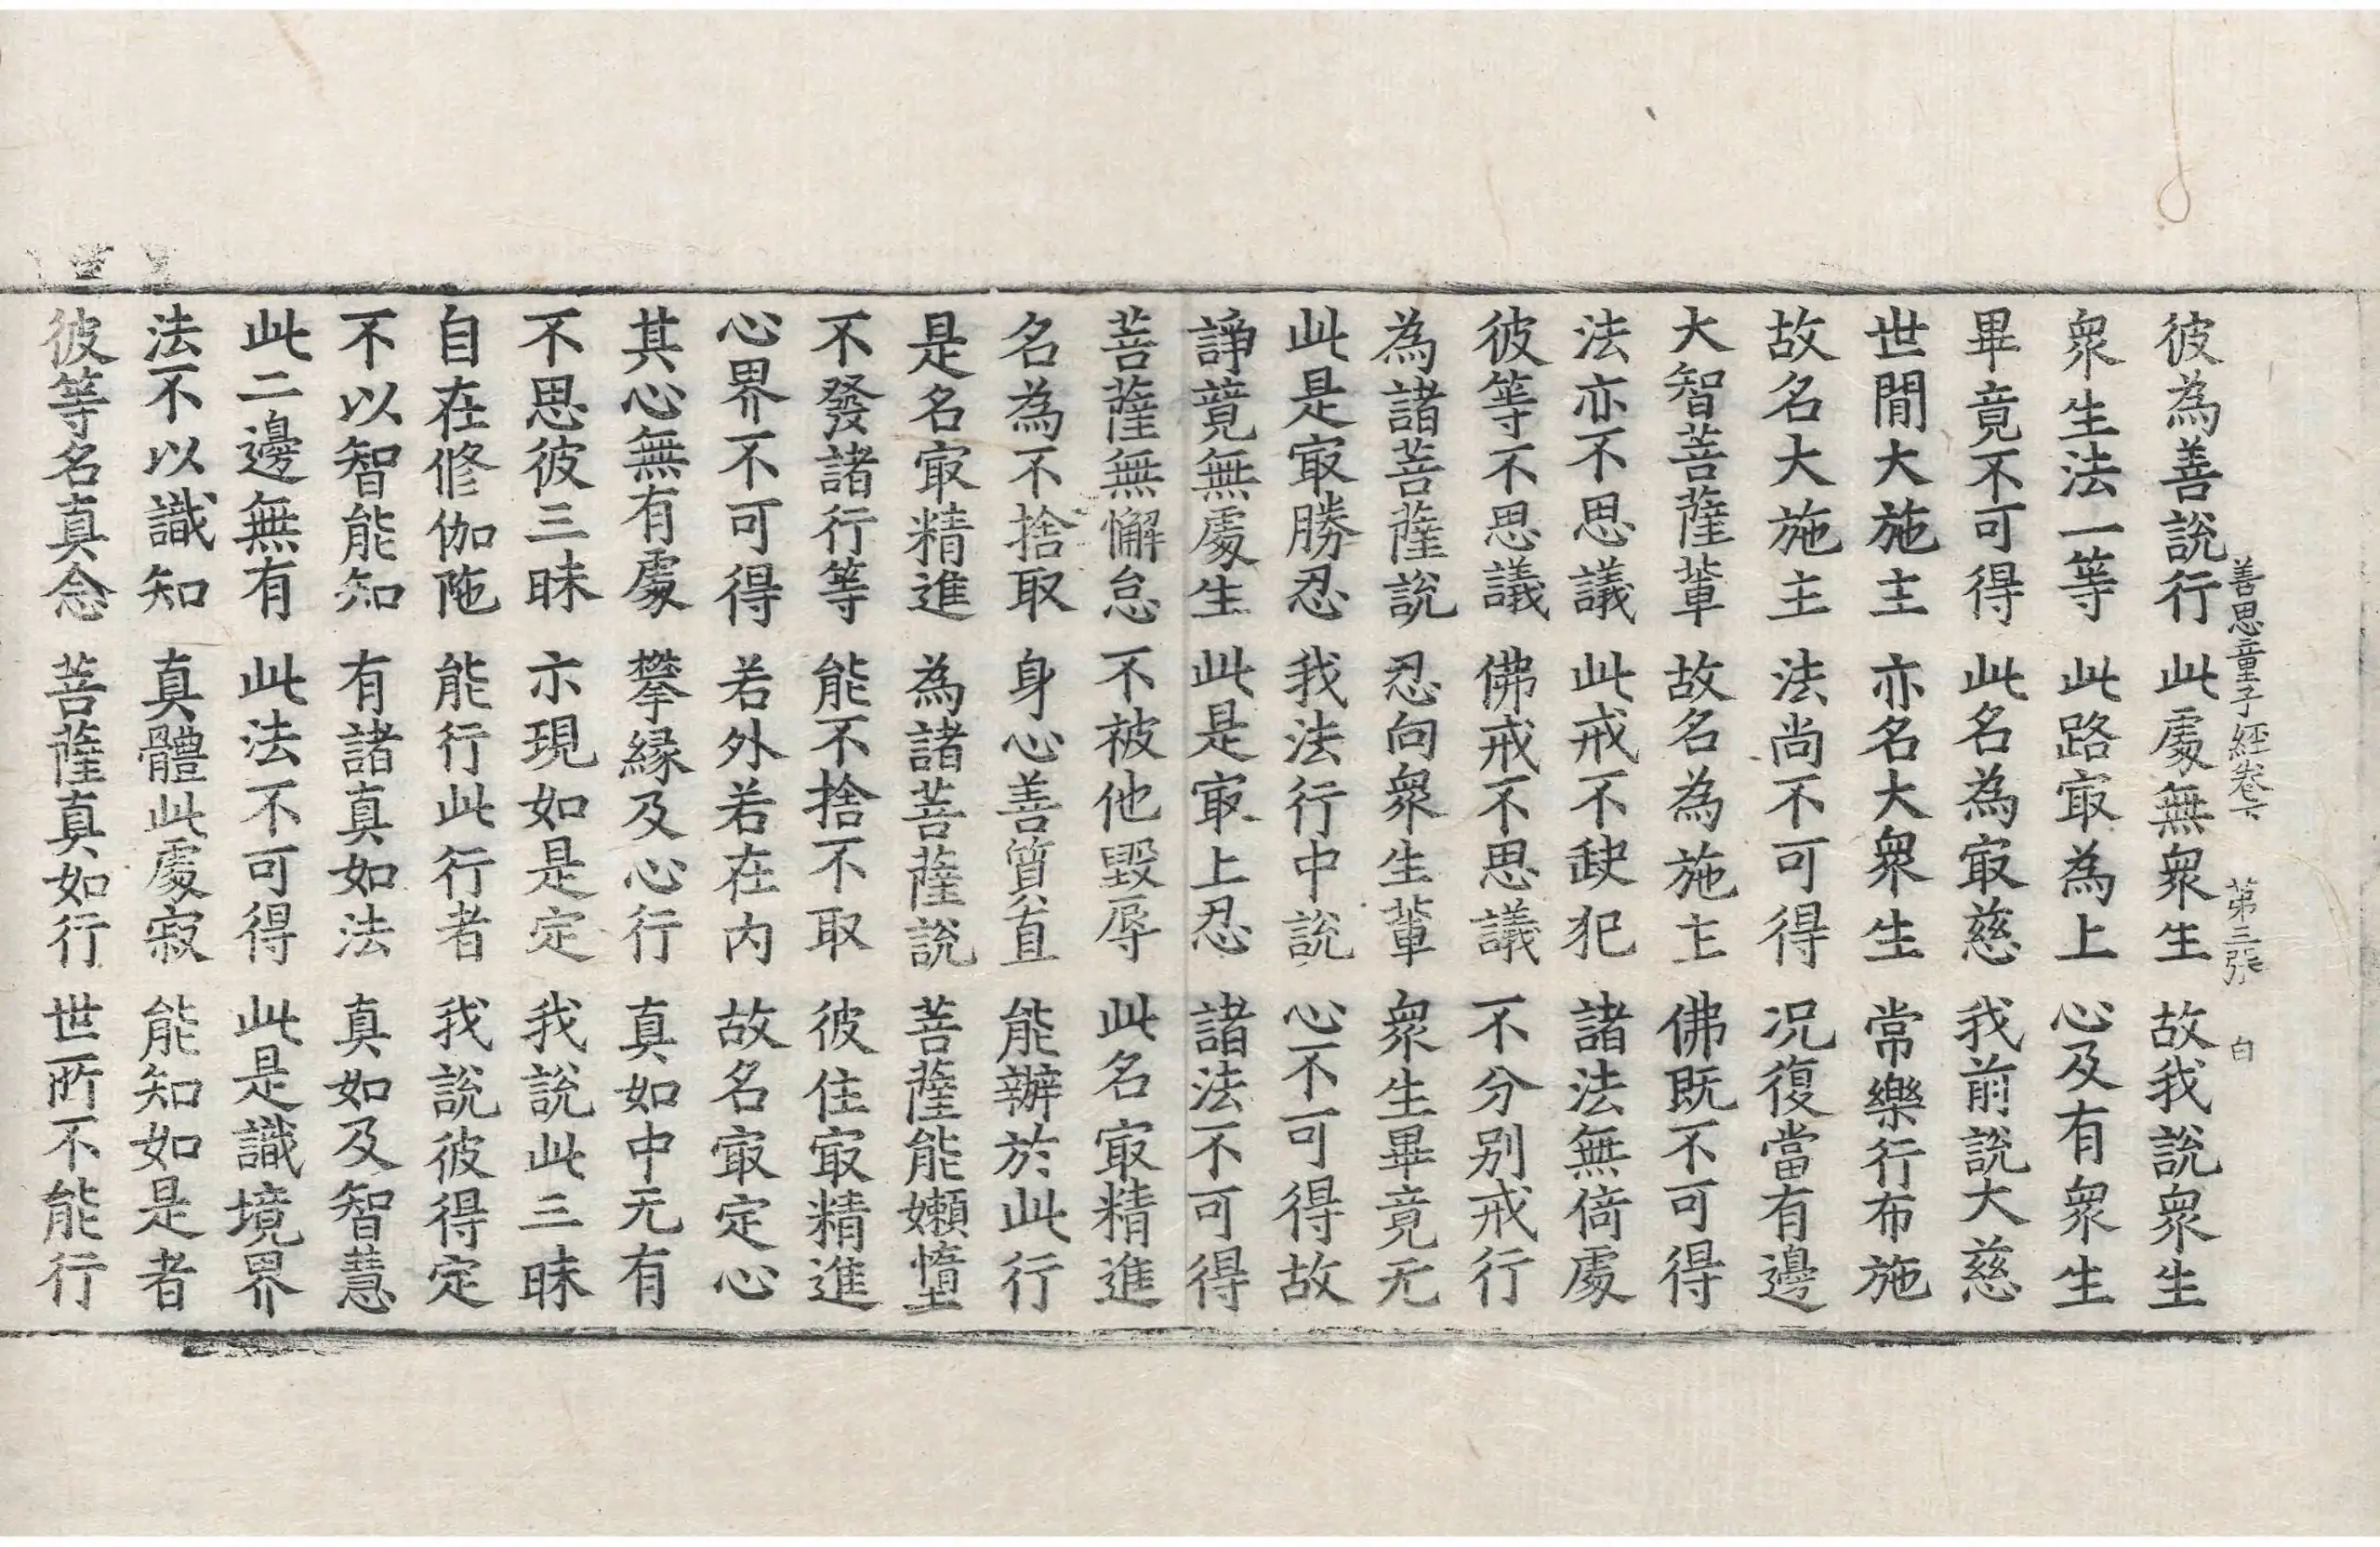 善思童子經卷下　第三張　白
彼為善說行　此處無衆生　故我說衆生
衆生法一等　此路㝡為上　心及有衆生
畢竟不可得　此名為㝡慈　我前說大慈
世間大施主　亦名大衆生　常樂行布施
故名大施主　法尚不可得　况復當有邊
大智菩薩輩　故名為施主　佛既不可得
法亦不思議　此戒不缺犯　諸法無倚處
彼等不思議　佛戒不思議　不分别戒行
為諸菩薩說　忍向衆生輩　衆生畢竟无
此是㝡勝忍　我法行中說　心不可得故
諍競無處生　此是㝡上忍　諸法不可得
菩薩無懈怠　不被他毀辱　此名㝡精進
名為不捨取　身心善質直　能辦於此行
是名㝡精進　為諸菩薩說　菩薩能嬾墮
不發諸行等　能不捨不取　彼住㝡精進
心界不可得　若外若在内　故名㝡定心
其心無有處　攀縁及心行　真如中无有
不思彼三昧　亦現如是定　我說此三昧
自在修伽陁　能行此行者　我說彼得定
不以智能知　有諸真如法　真如及智慧
此二邊無有　此法不可得　此是識境界
法不以識知　真體此處寂　能知如是者
彼等名真念　菩薩真如行　世所不能行